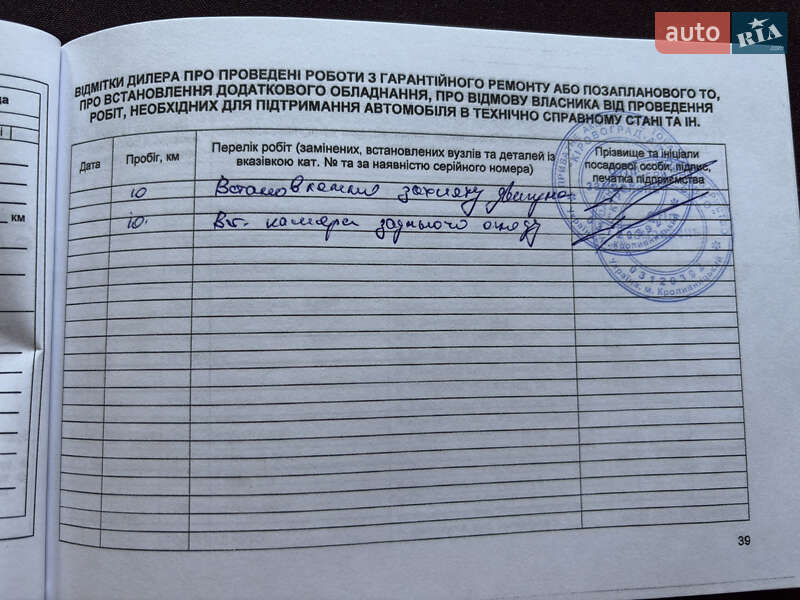 auto RIA
да
км
ВІДМІТКИ ДИЛЕРА ПРО ПРОВЕДЕНІ РОБОТИ З ГАРАНТІЙНОГО РЕМОНТУ АБО ПОЗАПЛАНОВОГО ТО,
ПРО ВСТАНОВЛЕННЯ ДОДАТКОВОГО ОБЛАДНАННЯ, ПРО ВІДМОВУ ВЛАСНИКА ВІД ПРОВЕДЕННЯ
РОБІТ, НЕОБХІДНИХ ДЛЯ ПІДТРИМАННЯ АВТОМОБІЛЯ В ТЕХНІЧНО СПРАВНОМУ СТАНІ ТА ІН.
Дата
Пробіг, км
Перелік робіт (замінених, встановлених вузлів та деталей із
вказівкою кат. № та за наявністю серійного номера)
Прізвище та ініціали
посадової особи, підпис,
печатка підприємства
10 Встановлення захисту двигуна
10. Вст. камери заднього огляду
Україна, м. Кропивницький
39